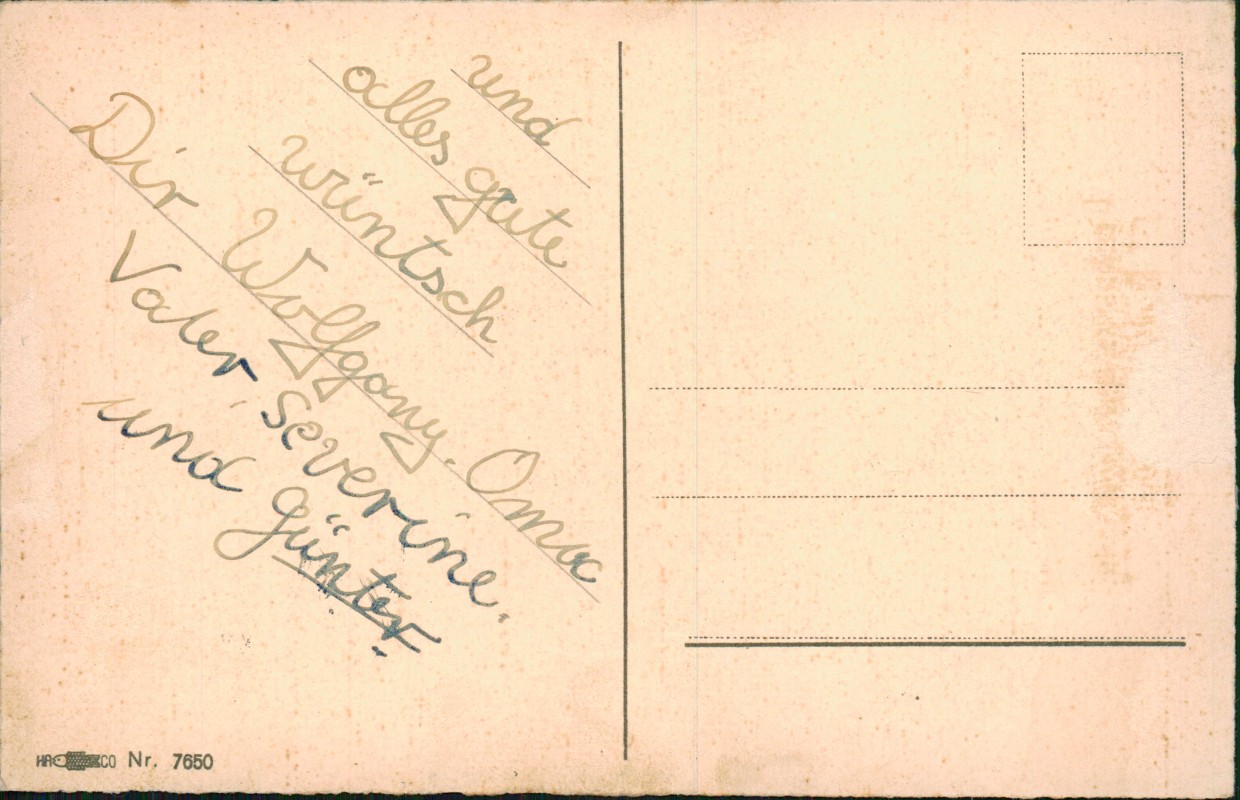 und
alles gute
wüntsch
Dir Wolfgang. Oma
Vater, Severine.
und Günter.
HA CO Nr. 7650